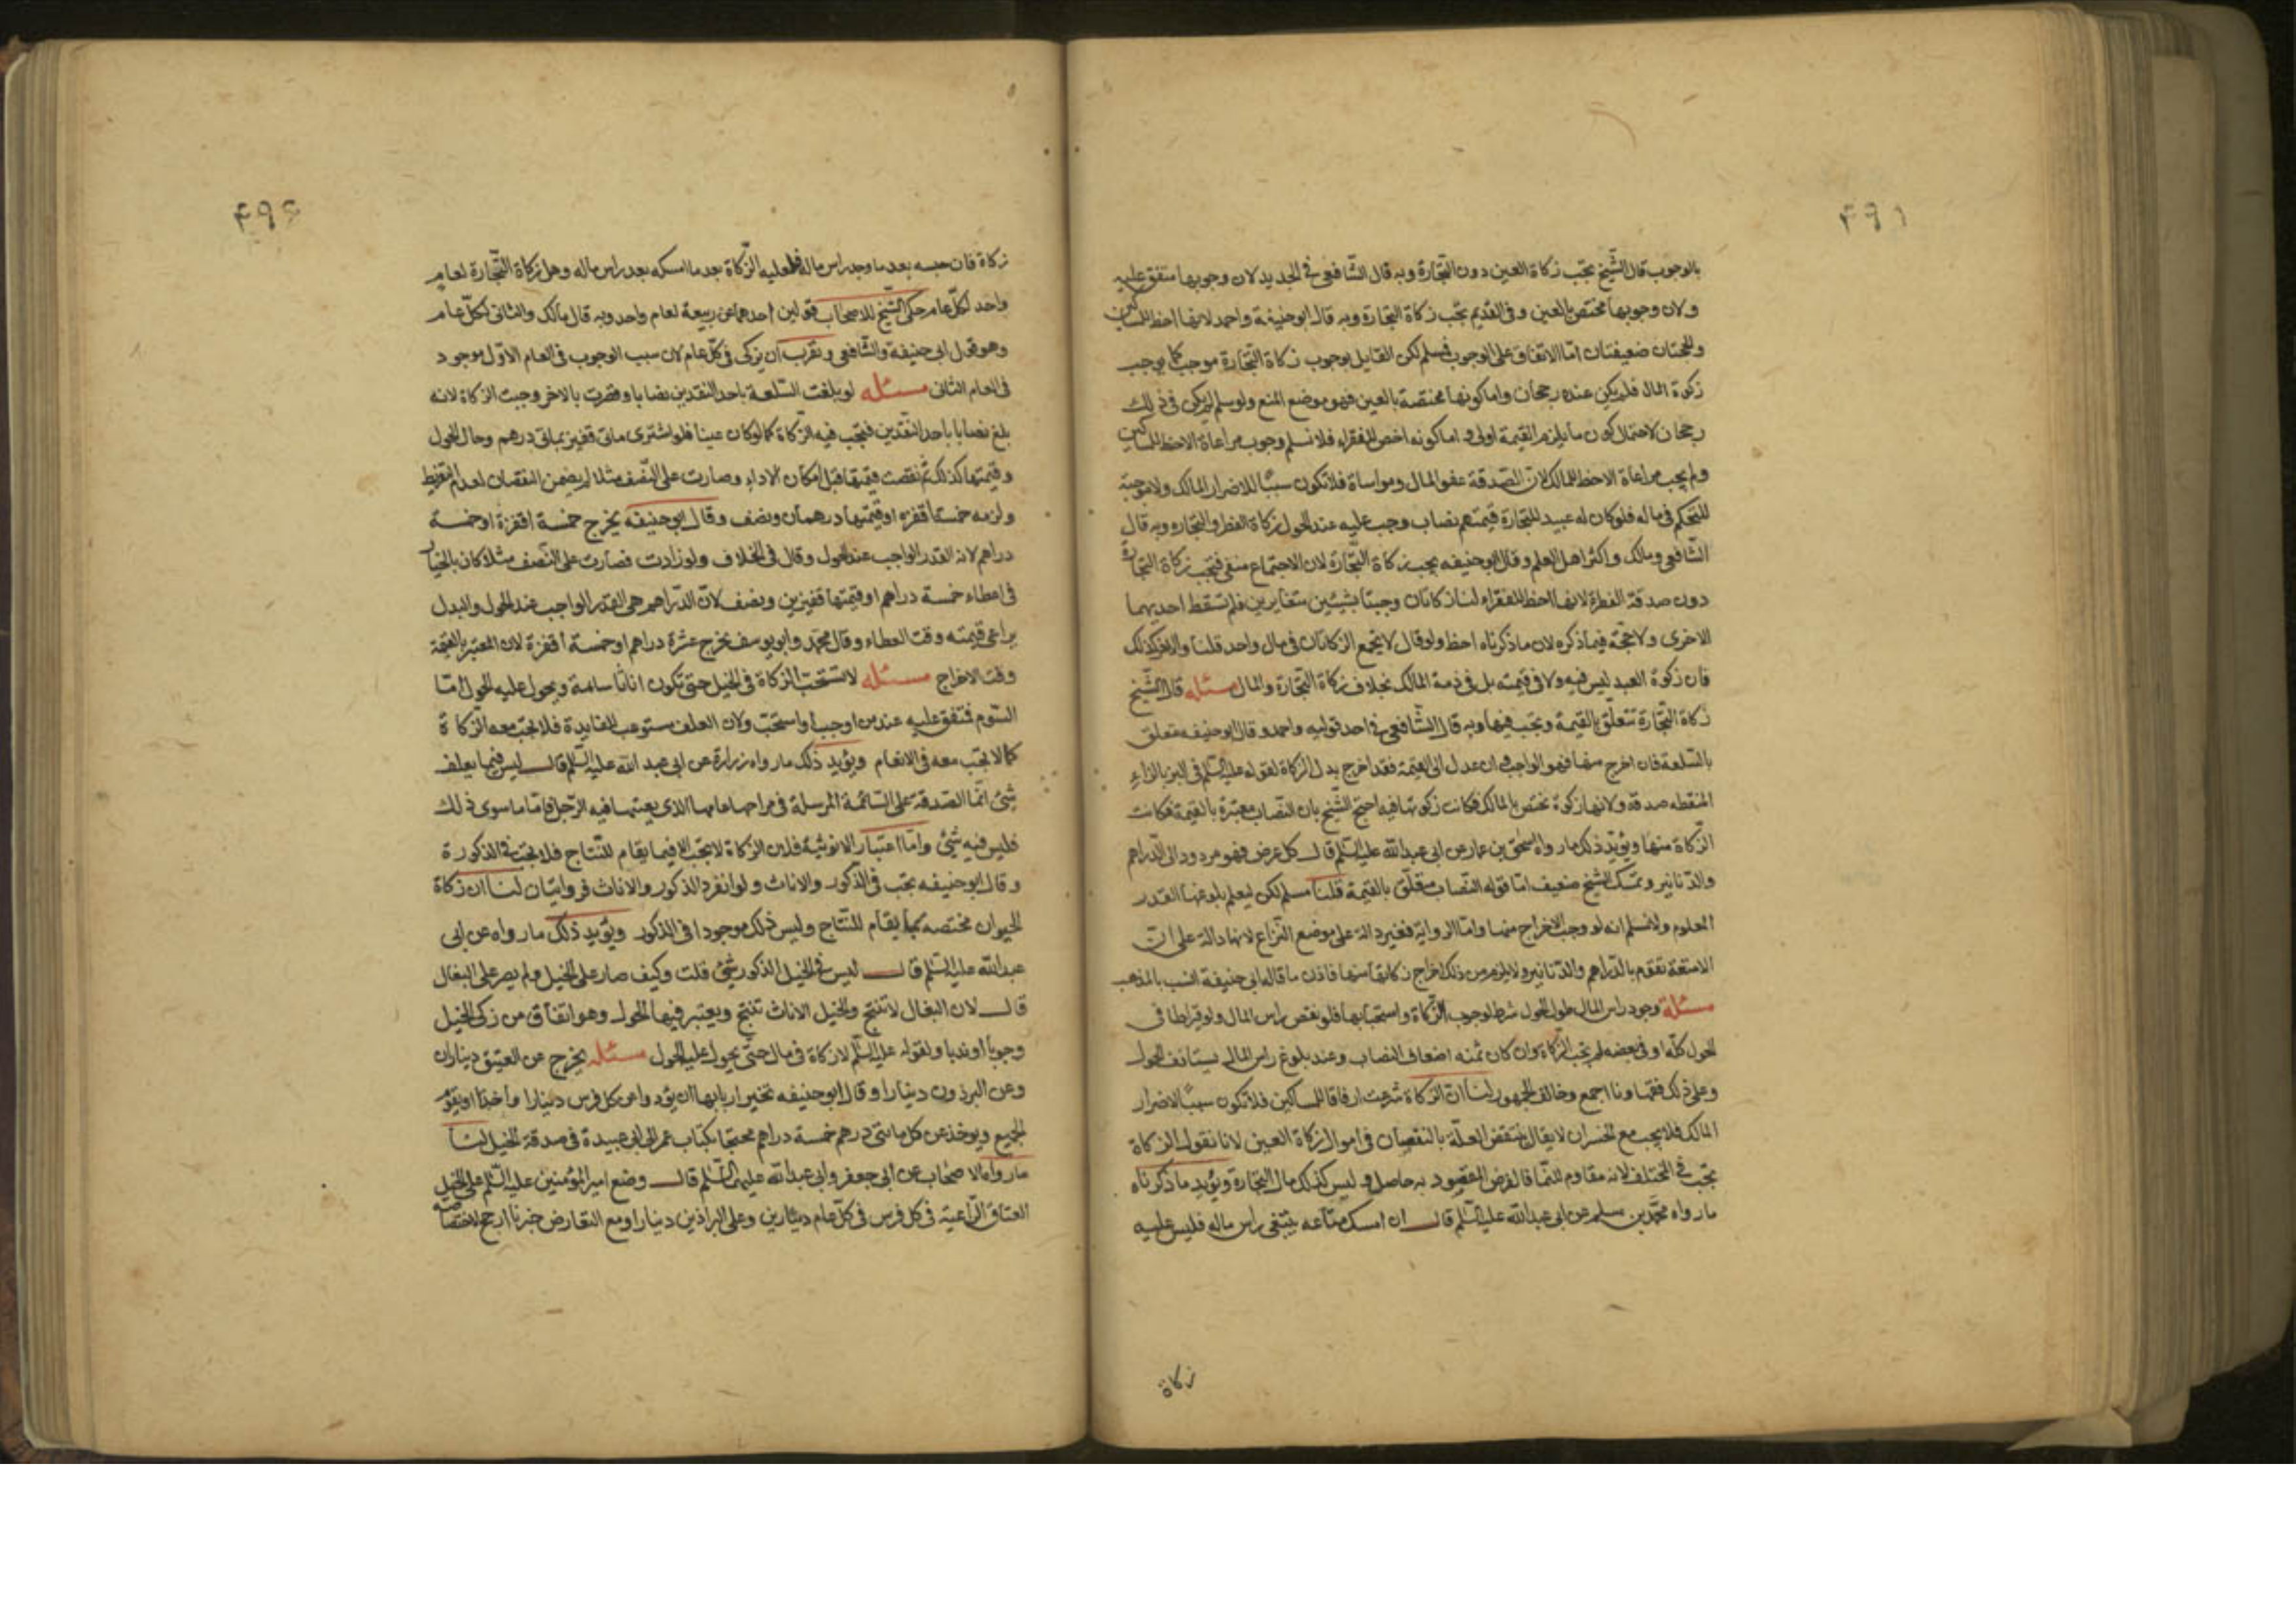 ٤٩١
بالوجوب قال الشّيخ تجب زكاة العين دون التّجارة وبه قال الشّافعي في الجديد لان وجوبها متفق عليه
ولان وجوبها مختص بالعين وفى القديم تجب زكاة التجارة وبه قال ابو حنيفة واحمد لانها احظ للمساكين
والحجتان ضعيفتان امّا الاتفاق على الوجوب فمسلم لكن القايل بوجوب زكاة التّجارة موجب كما يوجب
زكوة المال فلم يكن عنده رجحان واما كونها مختصة بالعين فهو موضع المنع ولو سلم لم يكن فى ذلك
رجحان لاحتمال كون ما يلزم القيمة اولى و اما كونه اخص للفقراء فلا نسلم وجوب مراعاة الاحظ للمساكين
ولم يجب مراعاة الاحظ للمالك لان الصّدقة عفو المال ومواساة فلا تكون سببًا للاضرار بالمالك ولا موجبة
للتحكم فى ماله فلو كان له عبيد للتجارة قيمتهم نصاب وجب عليه عند الحول زكاة الفطر والتجاره وبه قال
الشّافعي ومالك واكثر اهل العلم وقال ابو حنيفه يجب زكاة التّجارة لان الاجتماع منفى فتجب زكاة التجارة
دون صدقة الفطرة لانها احظ للفقراء لنا زكاتان وجبتا بشيئين متغايرين فلم تسقط احديهما
الاخرى ولا حجّة فيما ذكره لان ما ذكرناه احظ ولو قال لا تجمع الزكاتان فى مال واحد قلنا والامر كذلك
فان زكوة العبد ليس فيه ولا فى قيمته بل فى ذمة المالك بخلاف زكاة التّجارة والمال مسئله قال الشّيخ
زكاة التّجارة تتعلّق بالقيمة وتجب فيها وبه قال الشّافعي فى احد قوليه واحمد وقال ابو حنيفه متعلق
بالسّلعة فان اخرج منها فهو الواجب وان عدل الى القيمة فقد اخرج بدل الزكاة لقوله عليه السّلم فى البز بالزاء
المنقطه صدقة ولانها زكوة تختص بالمالك فكانت زكوتها فيه احتج الشّيخ بان النّصاب معتبرة بالقيمة فكانت
الزّكاة منها ويؤيّد ذلك ما رواه اسحٰق بن عمار عن ابى عبد الله عليه السّلم قال كل عرض فهو مردود الى الدّراهم
والدّنانير وتمسّك الشّيخ ضعيف امّا قوله النّصاب متعلّق بالقيمة قلنا مسلم لكن ليعلم بلوغها القدر
المعلوم ولا نسلم انه لو وجب الاخراج منها واما الرواية فغير دالة على موضع النّزاع لانها دالة على انّ
الامتعة تقوّم بالدّراهم والدّنانير ولا يلزم من ذلك اخراج زكاتها منها فاذن ما قاله ابى حنيفة انسب بالمذهب
مسئلة وجود راس المال طول الحول شرط لوجوب الزّكاة واستحبابها فلو نقص راس المال ولو قيراطا فى
الحول كلّه او فى بعضه لم يجب الزّكاة وان كان ثمنه اضعاف النصاب وعند بلوغ راس المال يستانف الحول
وعلى ذلك فقهاونا اجمع وخالف الجمهور لنا ان الزكاة شرعت ارفاقا للمساكين فلا تكون سببًا لاضرار
المالك فلا يجب مع الخسران لا يقال تنتقض العلّة بالنقصان فى اموال زكاة العين لانا نقول الزكاة
تجب فى المختلف لانه مقاوم للنّما فالغرض المقصود به حاصل و ليس كذلك مال التجارة ويؤيد ما ذكرناه
ما رواه محمّد بن مسلم عن ابى عبد الله عليه السّلم قال ان امسك متاعه يبتغى راس ماله فليس عليه
زكاة
زكاة فان حبسه بعد ما وجد راس ماله فعليه الزّكاة بعد ما امسكه بعد راس ماله وهل زكاة التّجارة لعام
واحد لكلّ عام حكى الشّيخ للاصحاب قولين احدهما عن ربيعة لعام واحد وبه قال مالك والثانى لكلّ عام
وهو قول ابى حنيفة والشّافعى وتقرب ان يزكى فى كلّ عام لان سبب الوجوب فى العام الاوّل موجود
فى العام الثانى مسئله لو بلغت السّلعة باحد النقدين نصابا وقصرت بالاخر وجبت الزكاة لانه
بلغ نصابا باحد النّقدين فتجب فيه الزّكاة كما لو كان عينا فلو اشترى مائى قفيز بمائى درهم وحال الحول
وقيمتها كذلك ثمّ نقصت قيمتها قبل امكان الاداء وصارت على النّصف مثلا لم يضمن النقصان لعدم التفريط
ولزمه خمسة اقفزه او قيمتها درهمان ونصف وقال ابو حنيفه يخرج خمسة اقفزة او خمسة
دراهم لانه القدر الواجب عند الحول وقال فى الخلاف ولو زادت فصارت على النّصف مثلا كان بالخيار
فى اعطاء خمسة دراهم او قيمتها قفيزين ونصف لانّ الدّراهم هى القدر الواجب عند الحول والبدل
يراعى قيمته وقت العطاء وقال محمّد وابو يوسف يخرج عشرة دراهم او خمسة اقفزة لان المعتبر بالقيمة
وقت الاخراج مسئله لا تستحبّ الزكاة فى الخيل حتى تكون اناثا سامة ويحول عليه الحول امّا
السّوم فمتفق عليه عند من اوجب او استحبّ ولان العلف مستوعب للفايدة فلا تجب معه الزّكاة
كما لا تجب معه فى الانعام ويؤيد ذلك ما رواه زرارة عن ابى عبد الله عليه السّلم قال ليس فيما يعلف
شئ انّما الصّدقة على السّائمة المرسلة فى مراحها عامها الذى يعينها فيه الرّجل فامّا ما سوى ذلك
فليس فيه شئ وامّا اعتبار الانوثية فلان الزكاة لا تجب الا فيما يقام للنّتاج فلا تجب فى الذكورة
وقال ابو حنيفه تجب فى الذّكور والاناث ولو انفرد الذكور والاناث فروايتان لنا ان زكاة
الحيوان مختصه بما يقام للنّتاج وليس ذلك موجودا فى الذكور ويؤيد ذلك ما رواه عن ابى
عبد الله عليه السّلم قال ليس فى الخيل الذكور شئ قلت وكيف صار على الخيل ولم يصر على البغال
قال لان البغال لا تنتج والخيل الاناث تنتج ويعتبر فيها الحول وهو اتفاق من زكى الخيل
وجوبا او ندبا ولقوله عليه السّلم لا زكاة فى مال حتّى يحول عليه الحول مسئله يخرج عن العتيق ديناران
وعن البرذون دينارا وقال ابو حنيفه تخير اربابها ان يؤدوا عن كل فرس دينارا واخذا او يقوّم
الجميع ويوخذ عن كل مائتى درهم خمسة دراهم محتجا بكتاب عمر الى ابى عبيدة فى صدقة الخيل لنا
ما رواه الاصحاب عن ابى جعفر وابى عبد الله عليهما السّلم قال وضع امير المؤمنين عليه السّلم على الخيل
العتاق الرّاعية فى كل فرس فى كلّ عام دينارين وعلى البراذين دينارا ومع التعارض خبرنا ارجح لاختصاصه